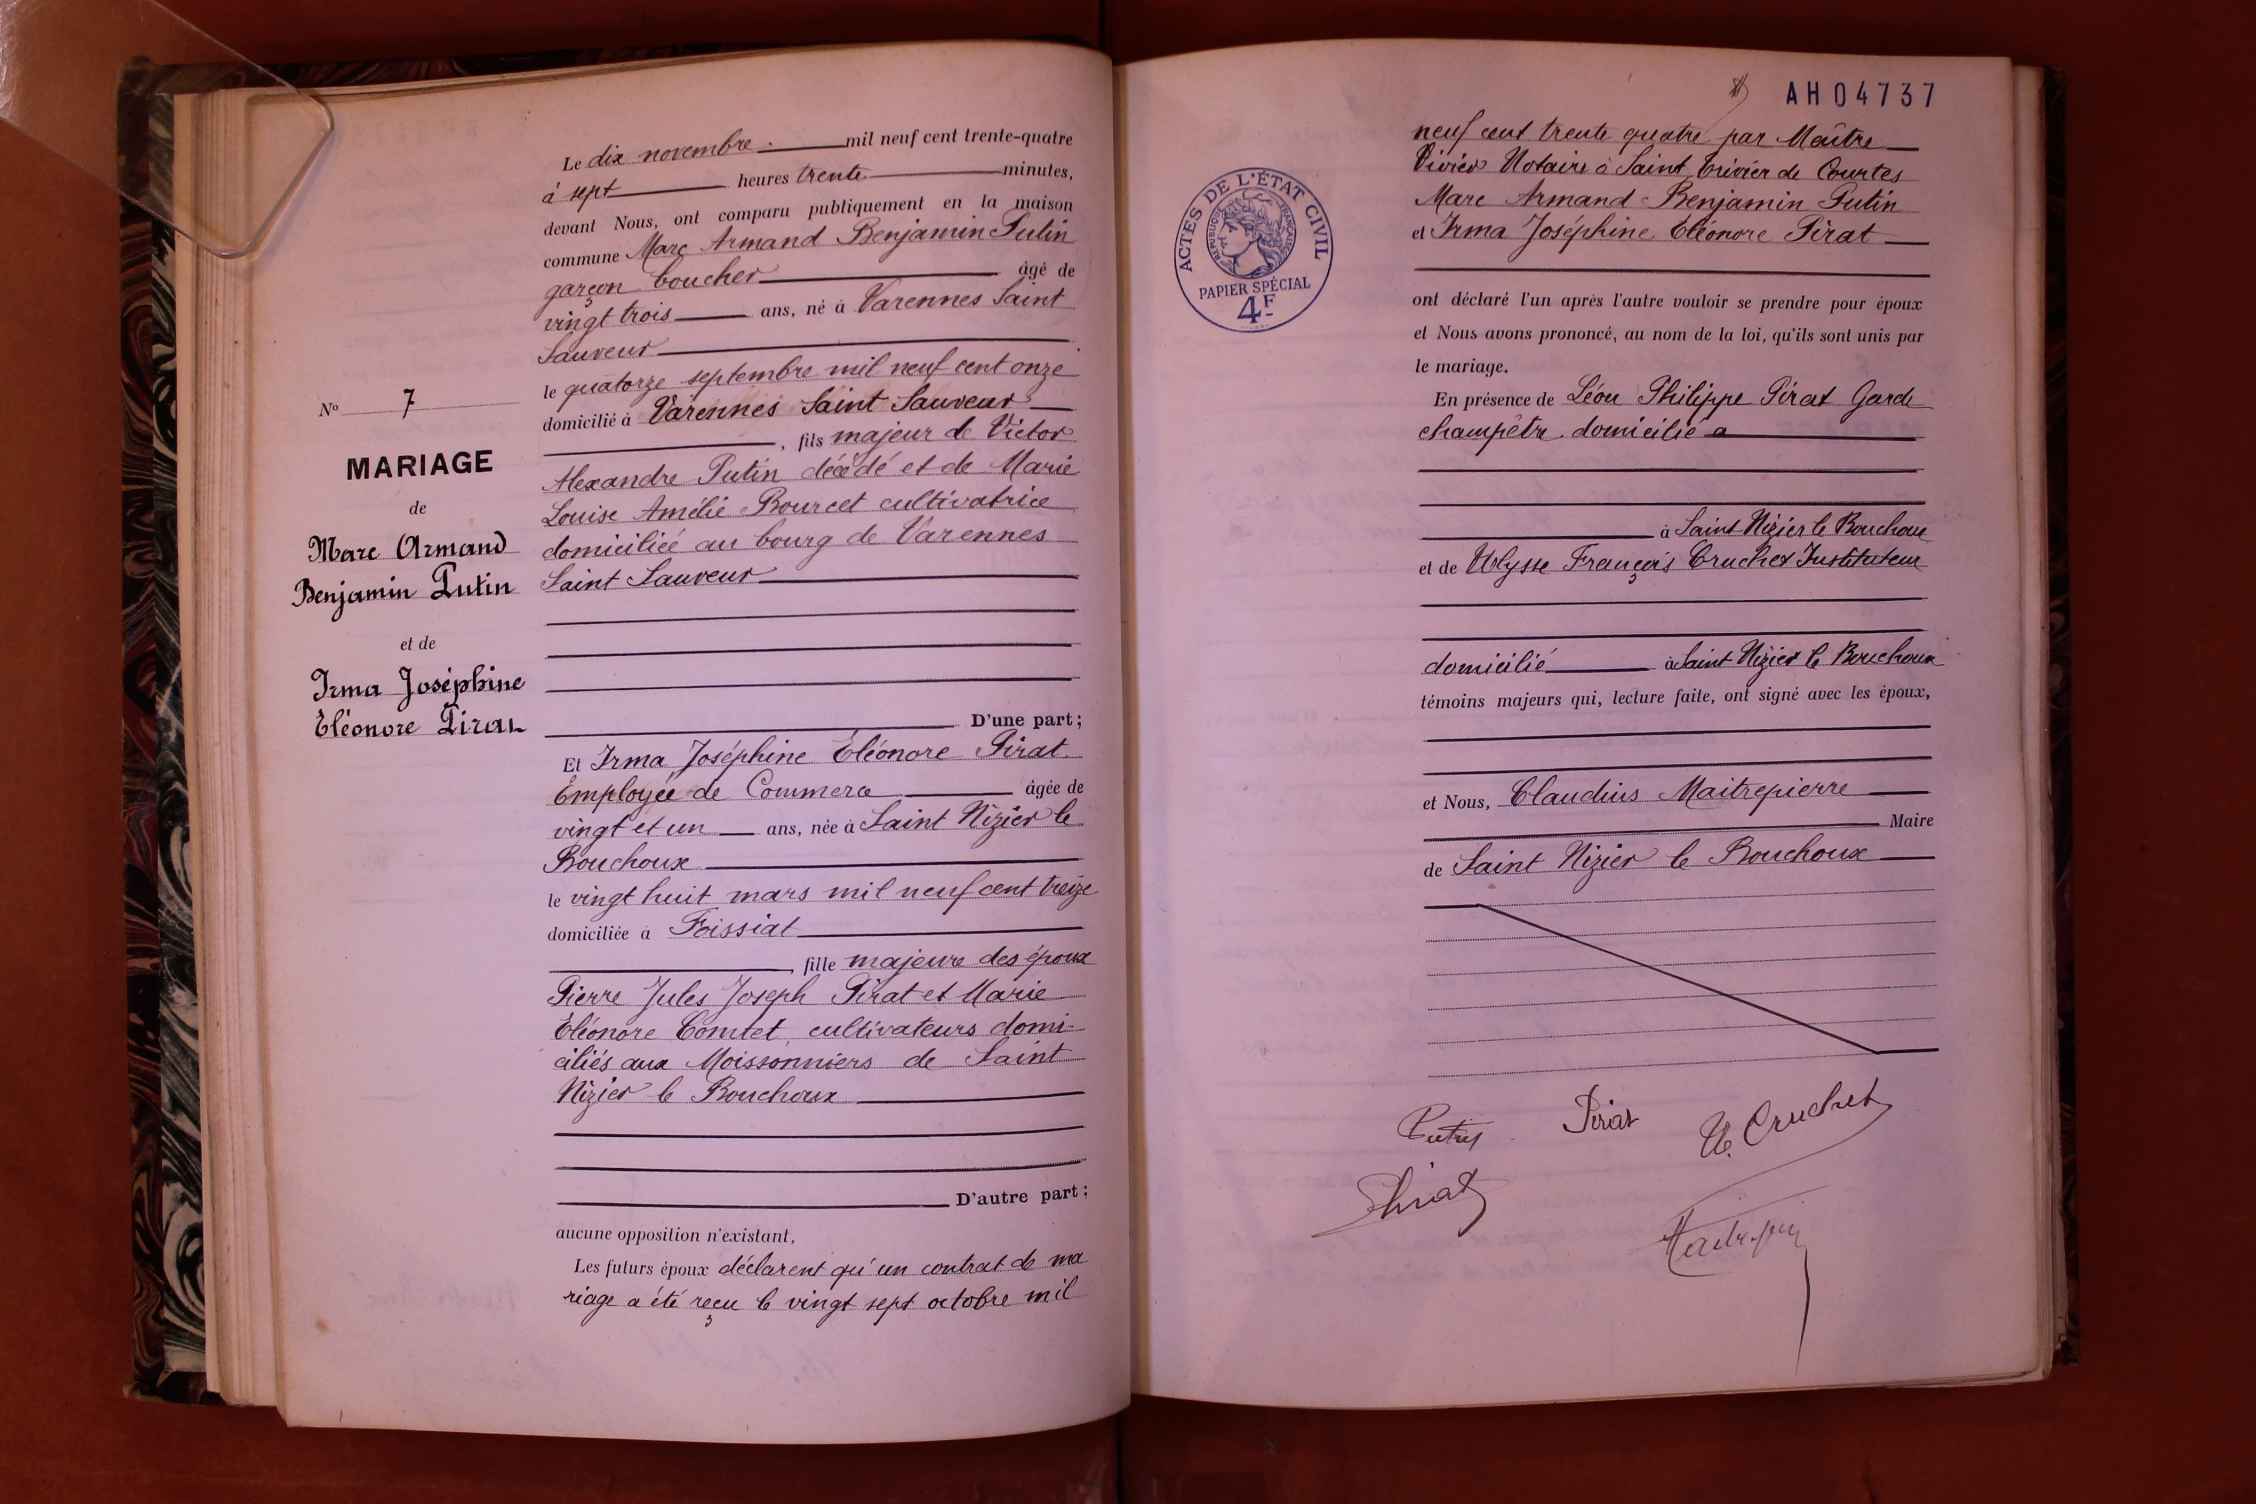 Le dix novembre mil neuf cent trente-quatre
à sept heures trente minutes,
devant Nous, ont comparu publiquement en la maison
commune Marc Armand Benjamin Putin
garçon boucher âgé de
vingt trois ans, né à Varennes Saint
Sauveur
le quatorze septembre mil neuf cent onze
domicilié à Varennes Saint Sauveur
, fils majeur de Victor
Alexandre Putin décédé et de Marie
Louise Amélie Bourcet cultivatrice
domiciliée au bourg de Varennes
Saint Sauveur
D'une part;
Nº 7
MARIAGE
de
Marc Armand
Benjamin Putin
et de
Irma Joséphine
Eléonore Pirat
Et Irma Joséphine Eléonore Pirat
Employée de Commerce âgée de
vingt et un ans, née à Saint Nizier le
Bouchoux
le vingt huit mars mil neuf cent treize
domiciliée à Foissiat
, fille majeure des époux
Pierre Jules Joseph Pirat et Marie
Eléonore Comtet cultivateurs domi-
ciliés aux Moissonniers de Saint
Nizier le Bouchoux
D'autre part;
aucune opposition n'existant,
Les futurs époux déclarent qu'un contrat de ma
riage a été reçu le vingt sept octobre mil
AH04737
ACTES DE L'ÉTAT CIVIL
RÉPUBLIQUE FRANÇAISE
PAPIER SPÉCIAL
4F
neuf cent trente quatre par Maître
Vivier Notaire à Saint Trivier de Courtes
Marc Armand Benjamin Putin
et Irma Joséphine Eléonore Pirat
ont déclaré l'un après l'autre vouloir se prendre pour époux
et Nous avons prononcé, au nom de la loi, qu'ils sont unis par
le mariage.
En présence de Léon Philippe Pirat Garde
champêtre domicilié a
à Saint Nizier le Bouchoux
et de Ulysse François Cruchet Instituteur
domicilié à Saint Nizier le Bouchoux
témoins majeurs qui, lecture faite, ont signé avec les époux,
et Nous, Claudius Maitrepierre
Maire
de Saint Nizier le Bouchoux
Putin Pirat U. Cruchet
Pirat